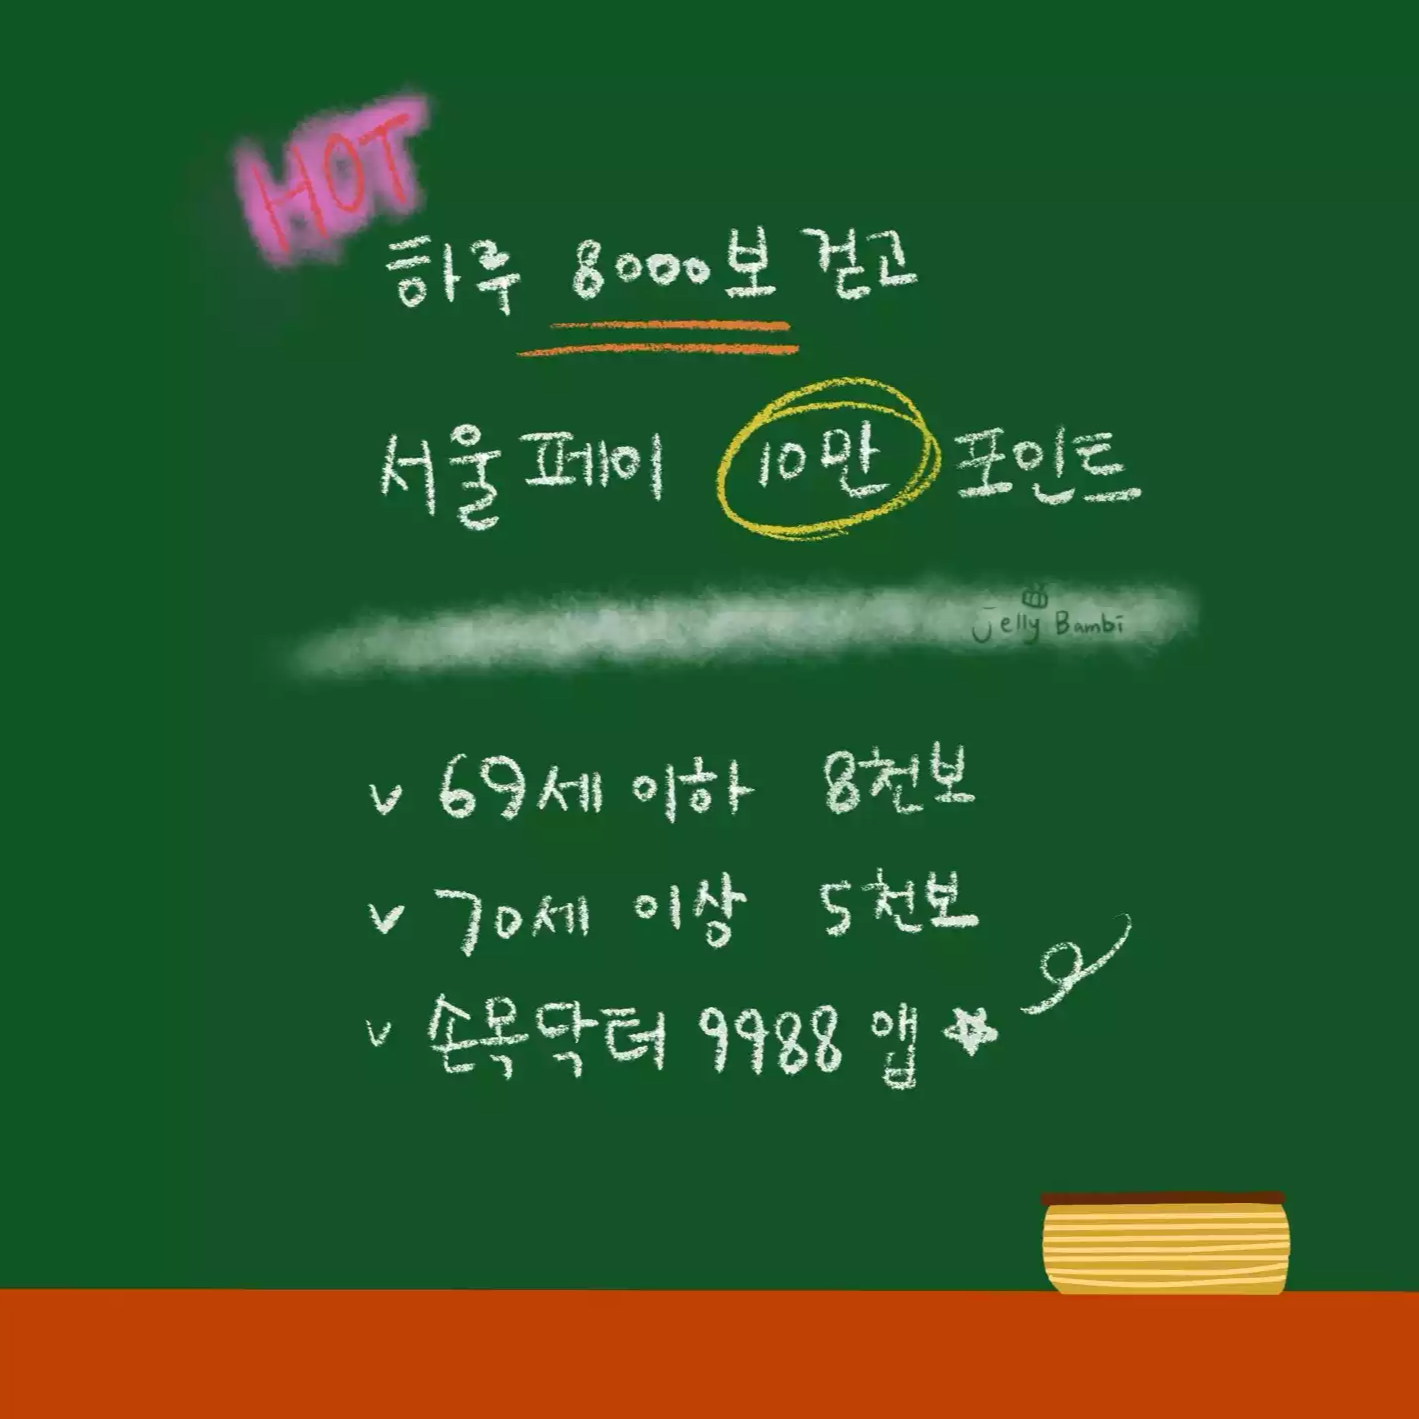 HOT
하루 8000보 걷고
서울페이 10만 포인트
Jelly Bambi
v 69세 이하 8천보
v 70세 이상 5천보
v 손목닥터 9988 앱 ☆